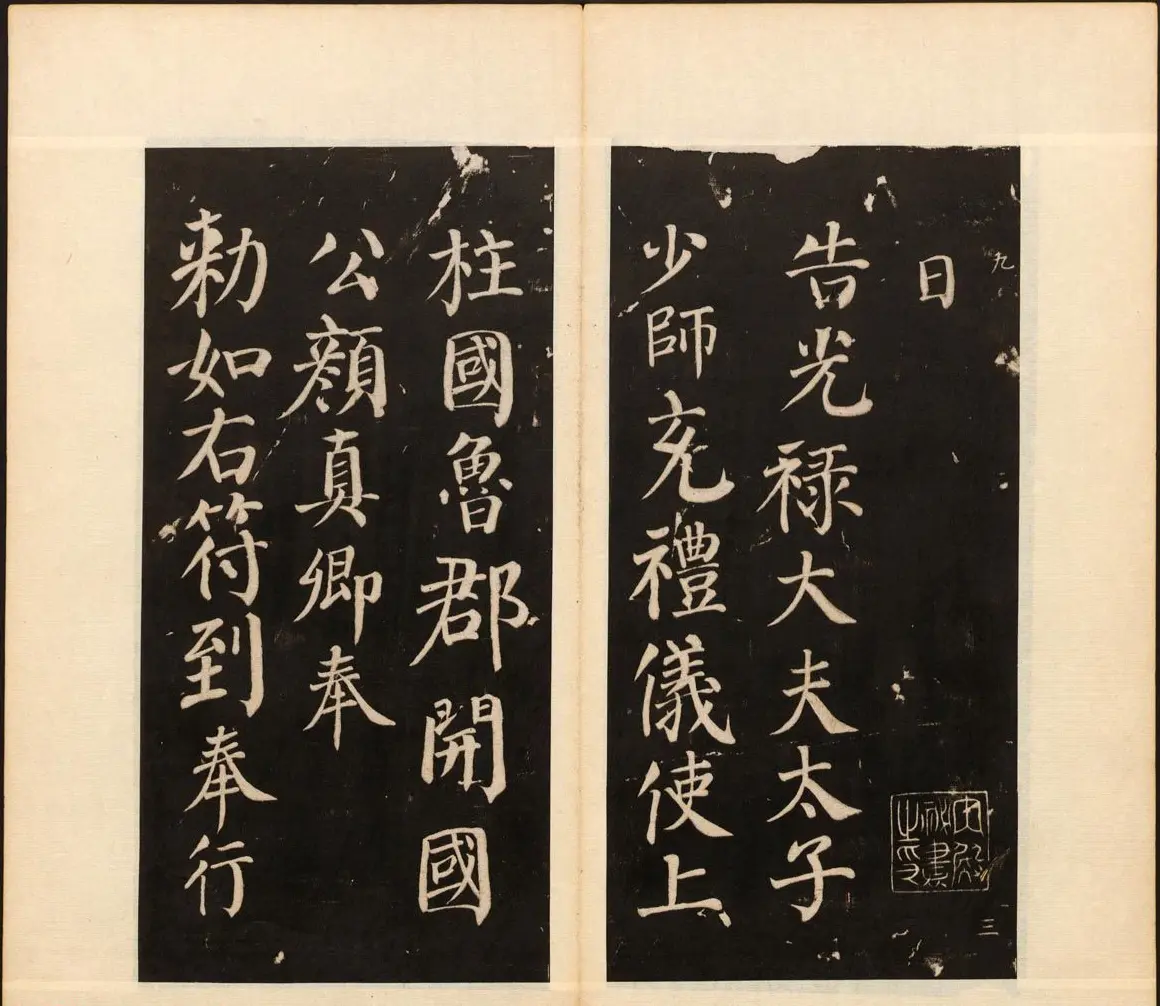 九
日
內殿秘書之印
三
告光祿大夫太子
少師充禮儀使上
柱國魯郡開國
公顏真卿奉
勅如右符到奉行